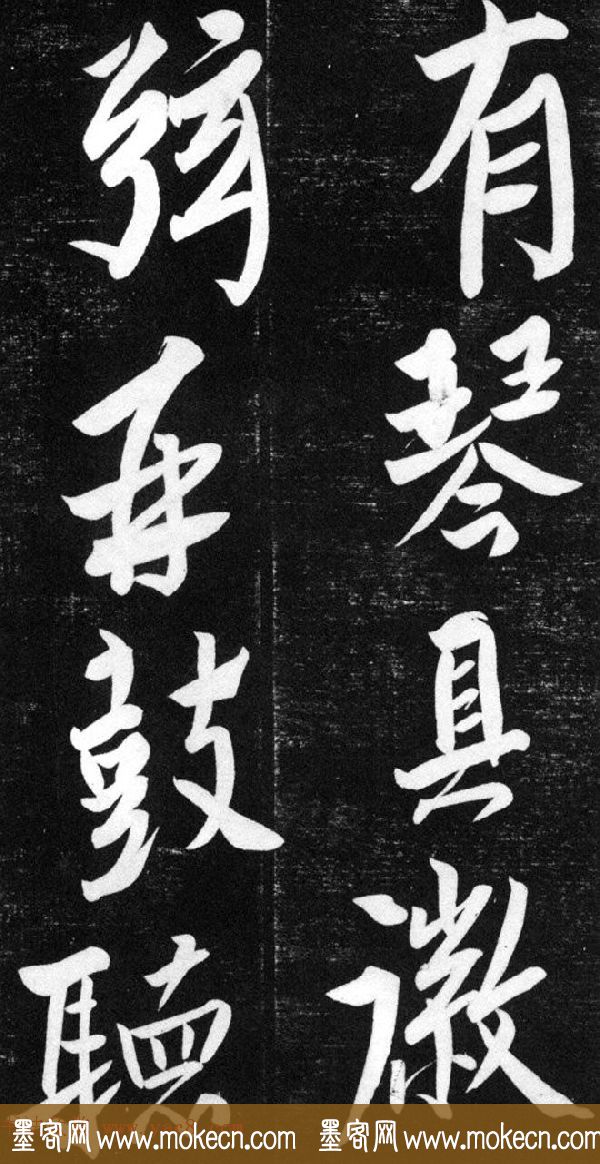 有琴具徽
弦再鼓聽
墨客网 www.mokecn.com 墨客网 www.mokecn.com